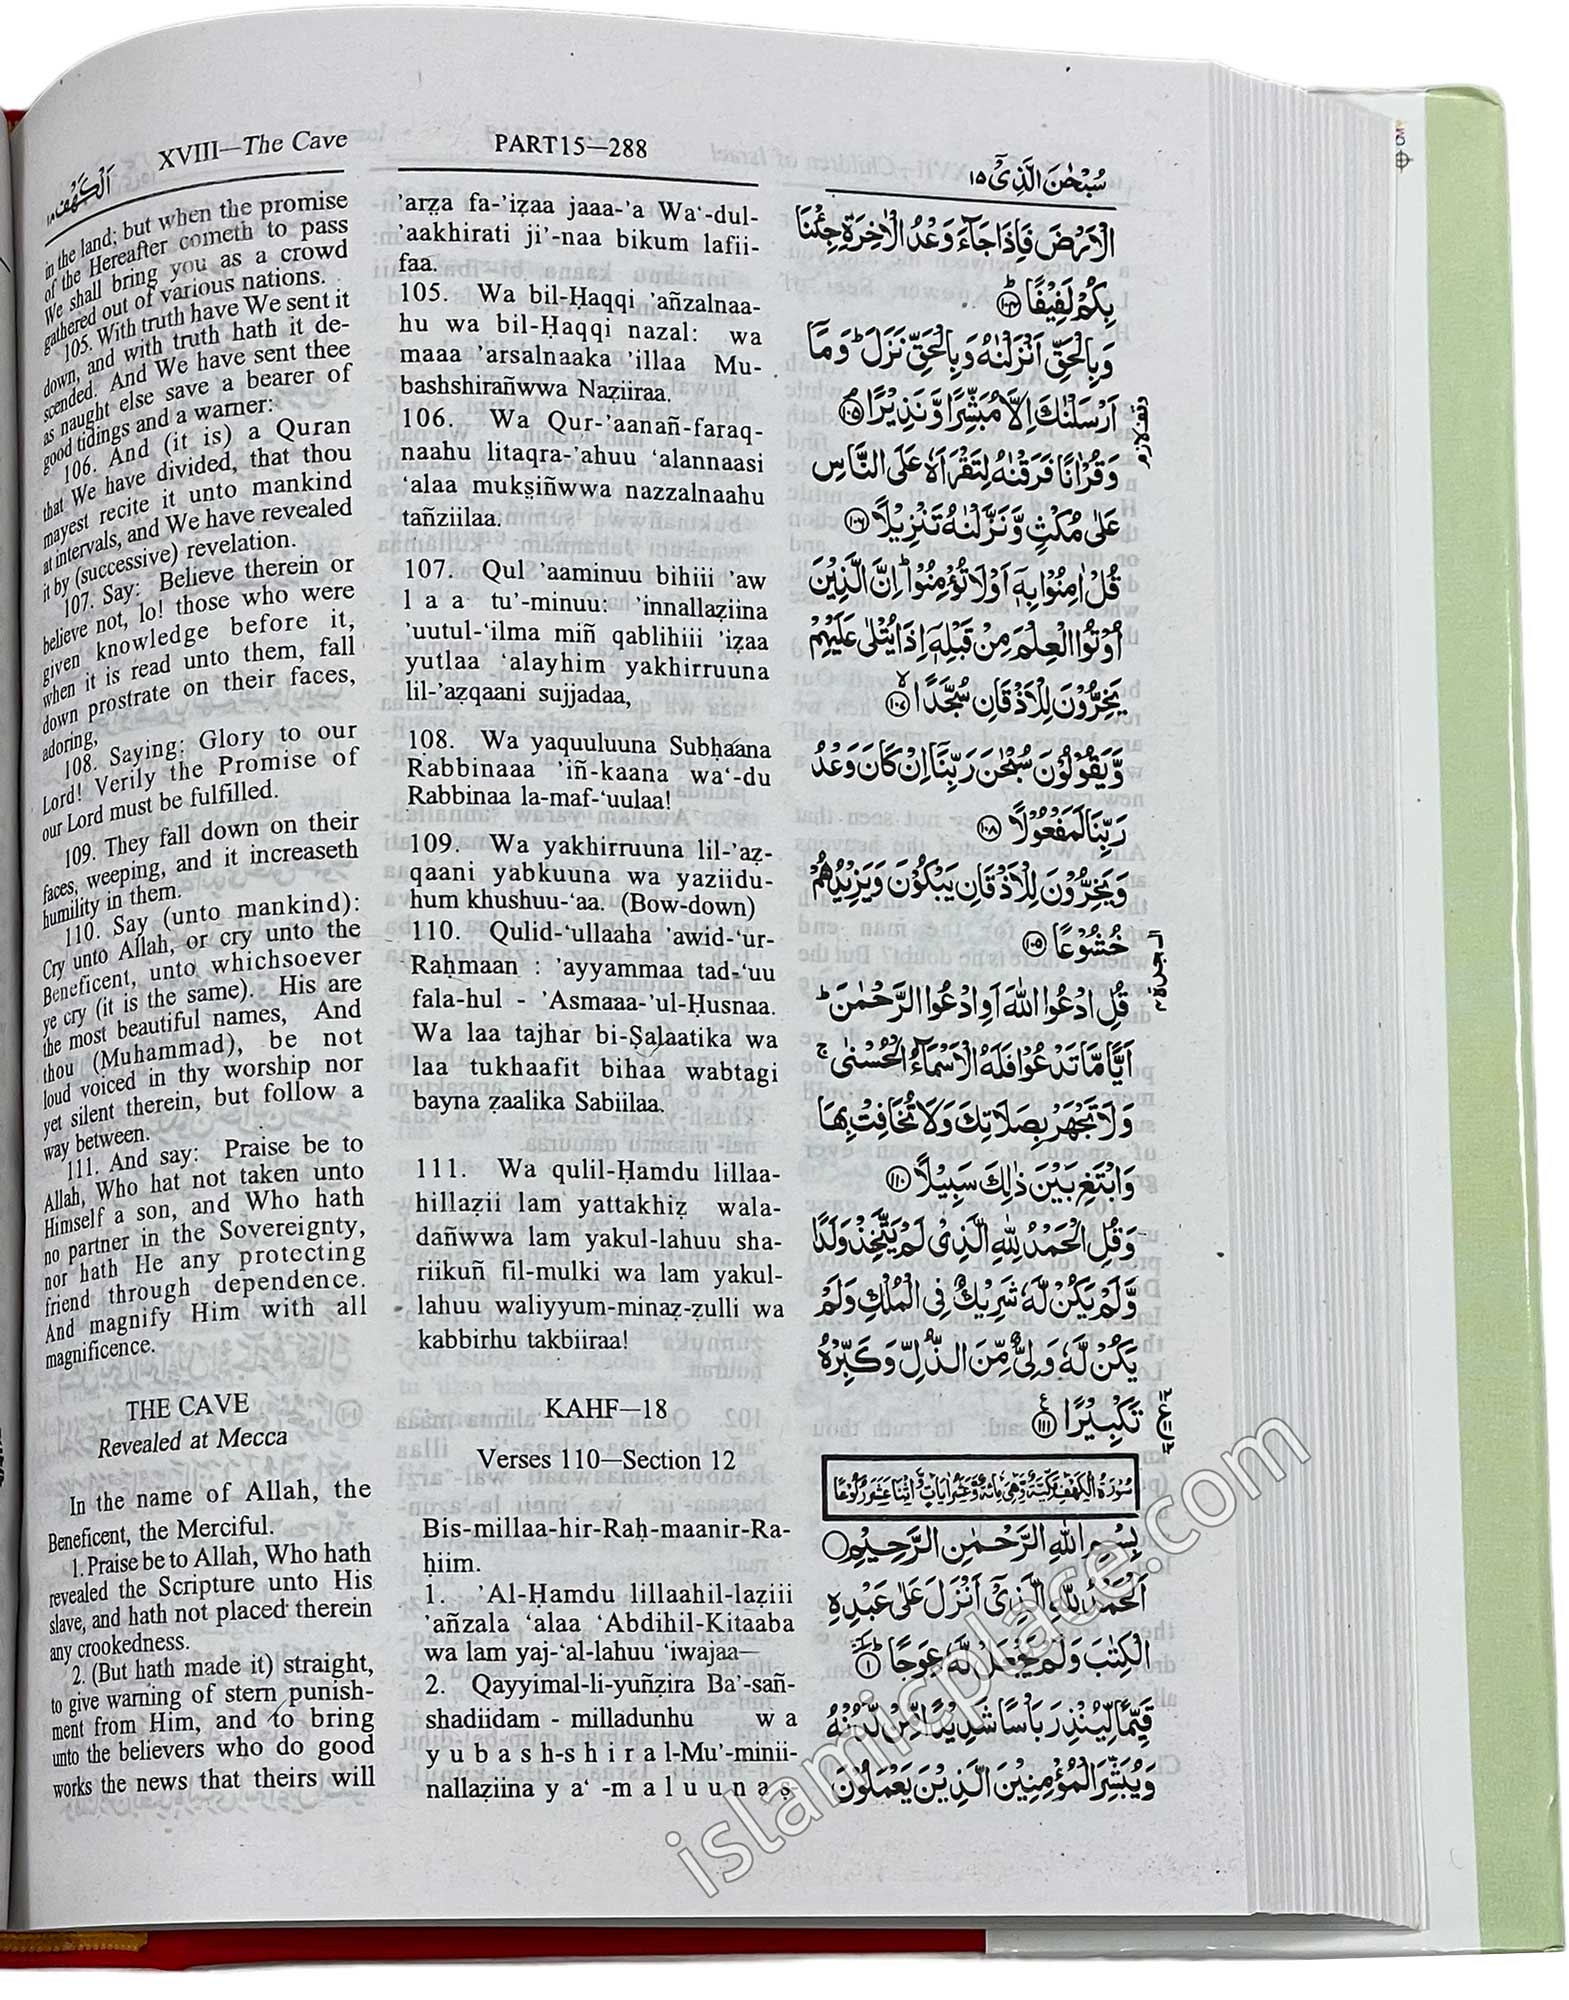 XVIII—The Cave
اَلْكَهْف ١٨
in the land; but when the promise
of the Hereafter cometh to pass
We shall bring you as a crowd
gathered out of various nations.
105. With truth have We sent it
down, and with truth hath it de-
scended. And We have sent thee
as naught else save a bearer of
good tidings and a warner:
106. And (it is) a Quran
that We have divided, that thou
mayest recite it unto mankind
at intervals, and We have revealed
it by (successive) revelation.
107. Say: Believe therein or
believe not, lo! those who were
given knowledge before it,
when it is read unto them, fall
down prostrate on their faces,
adoring,
108. Saying: Glory to our
Lord! Verily the Promise of
our Lord must be fulfilled.
109. They fall down on their
faces, weeping, and it increaseth
humility in them.
110. Say (unto mankind):
Cry unto Allah, or cry unto the
Beneficent, unto whichsoever
ye cry (it is the same). His are
the most beautiful names, And
thou (Muhammad), be not
loud voiced in thy worship nor
yet silent therein, but follow a
way between.
111. And say: Praise be to
Allah, Who hat not taken unto
Himself a son, and Who hath
no partner in the Sovereignty,
nor hath He any protecting
friend through dependence.
And magnify Him with all
magnificence.
THE CAVE
Revealed at Mecca
In the name of Allah, the
Beneficent, the Merciful.
1. Praise be to Allah, Who hath
revealed the Scripture unto His
slave, and hath not placed therein
any crookedness.
2. (But hath made it) straight,
to give warning of stern punish-
ment from Him, and to bring
unto the believers who do good
works the news that theirs will
PART15—288
’arẓa fa-’iẓaa jaaa-’a Wa‘-dul-
’aakhirati ji’-naa bikum lafii-
faa.
105. Wa bil-Ḥaqqi ’añzalnaa-
hu wa bil-Ḥaqqi nazal: wa
maaa ’arsalnaaka ’illaa Mu-
bashshirañwwa Naẓiiraa.
106. Wa Qur-’aanañ-faraq-
naahu litaqra-’ahuu ‘alannaasi
‘alaa mukṣiñwwa nazzalnaahu
tañziilaa.
107. Qul ’aaminuu bihiii ’aw
l a a tu’-minuu: ’innallaẓiina
’uutul-‘ilma miñ qablihiii ’iẓaa
yutlaa ‘alayhim yakhirruuna
lil-’aẓqaani sujjadaa,
108. Wa yaquuluuna Subḥaana
Rabbinaaa ’iñ-kaana wa‘-du
Rabbinaa la-maf-‘uulaa!
109. Wa yakhirruuna lil-’aẓ-
qaani yabkuuna wa yaziidu-
hum khushuu-‘aa. (Bow-down)
110. Qulid-‘ullaaha ’awid-‘ur-
Raḥmaan : ’ayyammaa tad-‘uu
fala-hul - ’Asmaaa-’ul-Ḥusnaa.
Wa laa tajhar bi-Ṣalaatika wa
laa tukhaafit bihaa wabtagi
bayna ẓaalika Sabiilaa.
111. Wa qulil-Ḥamdu lillaa-
hillaẓii lam yattakhiẓ wala-
dañwwa lam yakul-lahuu sha-
riikuñ fil-mulki wa lam yakul-
lahuu waliyyum-minaẓ-ẓulli wa
kabbirhu takbiiraa!
KAHF—18
Verses 110—Section 12
Bis-millaa-hir-Raḥ-maanir-Ra-
ḥiim.
1. ’Al-Ḥamdu lillaahil-laẓiii
’añzala ‘alaa ‘Abdihil-Kitaaba
wa lam yaj-‘al-lahuu ‘iwajaa—
2. Qayyimal-li-yuñẓira Ba’-sañ-
shadiidam - milladunhu w a
y u b a sh-sh i r a l-Mu’-minii-
nallaẓiina y a‘ -m a l u u n a ṣ-
سُبْحٰنَ الَّذِىْٓ ١٥
الْاَرْضَ فَاِذَا جَآءَ وَعْدُ الْاٰخِرَةِ جِئْنَا
بِكُمْ لَفِيْفًا ؕ ۝١٠٤
وَبِالْحَقِّ اَنْزَلْنٰهُ وَبِالْحَقِّ نَزَلَ ؕ وَمَآ
اَرْسَلْنٰكَ اِلَّا مُبَشِّرًا وَّنَذِيْرًا ۝١٠٥
وقف لازم
وَقُرْاٰنًا فَرَقْنٰهُ لِتَقْرَاَهٗ عَلَى النَّاسِ
عَلٰى مُكْثٍ وَّنَزَّلْنٰهُ تَنْزِيْلًا ۝١٠٦
قُلْ اٰمِنُوْا بِهٖٓ اَوْ لَا تُؤْمِنُوْا ؕ اِنَّ الَّذِيْنَ
اُوْتُوا الْعِلْمَ مِنْ قَبْلِهٖٓ اِذَا يُتْلٰى عَلَيْهِمْ
يَخِرُّوْنَ لِلْاَذْقَانِ سُجَّدًا ۙ ۝١٠٧
وَّيَقُوْلُوْنَ سُبْحٰنَ رَبِّنَآ اِنْ كَانَ وَعْدُ
رَبِّنَا لَمَفْعُوْلًا ۝١٠٨
وَيَخِرُّوْنَ لِلْاَذْقَانِ يَبْكُوْنَ وَيَزِيْدُهُمْ
خُشُوْعًا ۝١٠٩
السجدة ٤
قُلِ ادْعُوا اللّٰهَ اَوِ ادْعُوا الرَّحْمٰنَ ؕ
اَيًّا مَّا تَدْعُوْا فَلَهُ الْاَسْمَآءُ الْحُسْنٰى ۚ
وَلَا تَجْهَرْ بِصَلَاتِكَ وَلَا تُخَافِتْ بِهَا
وَابْتَغِ بَيْنَ ذٰلِكَ سَبِيْلًا ۝١١٠
وَقُلِ الْحَمْدُ لِلّٰهِ الَّذِىْ لَمْ يَتَّخِذْ وَلَدًا
وَّلَمْ يَكُنْ لَّهٗ شَرِيْكٌ فِى الْمُلْكِ وَلَمْ
يَكُنْ لَّهٗ وَلِىٌّ مِّنَ الذُّلِّ وَكَبِّرْهُ
تَكْبِيْرًا ۝١١١
سُوْرَةُ الْكَهْفِ مَكِّيَّةٌ وَّهِىَ مِائَةٌ وَّعَشْرُ اٰيَاتٍ وَّاثْنَا عَشَرَ رُكُوْعًا
بِسْمِ اللّٰهِ الرَّحْمٰنِ الرَّحِيْمِ ۝
اَلْحَمْدُ لِلّٰهِ الَّذِىْٓ اَنْزَلَ عَلٰى عَبْدِهِ
الْكِتٰبَ وَلَمْ يَجْعَلْ لَّهٗ عِوَجًا ۝١
قَيِّمًا لِّيُنْذِرَ بَاْسًا شَدِيْدًا مِّنْ لَّدُنْهُ
وَيُبَشِّرَ الْمُؤْمِنِيْنَ الَّذِيْنَ يَعْمَلُوْنَ
islamicplace.com